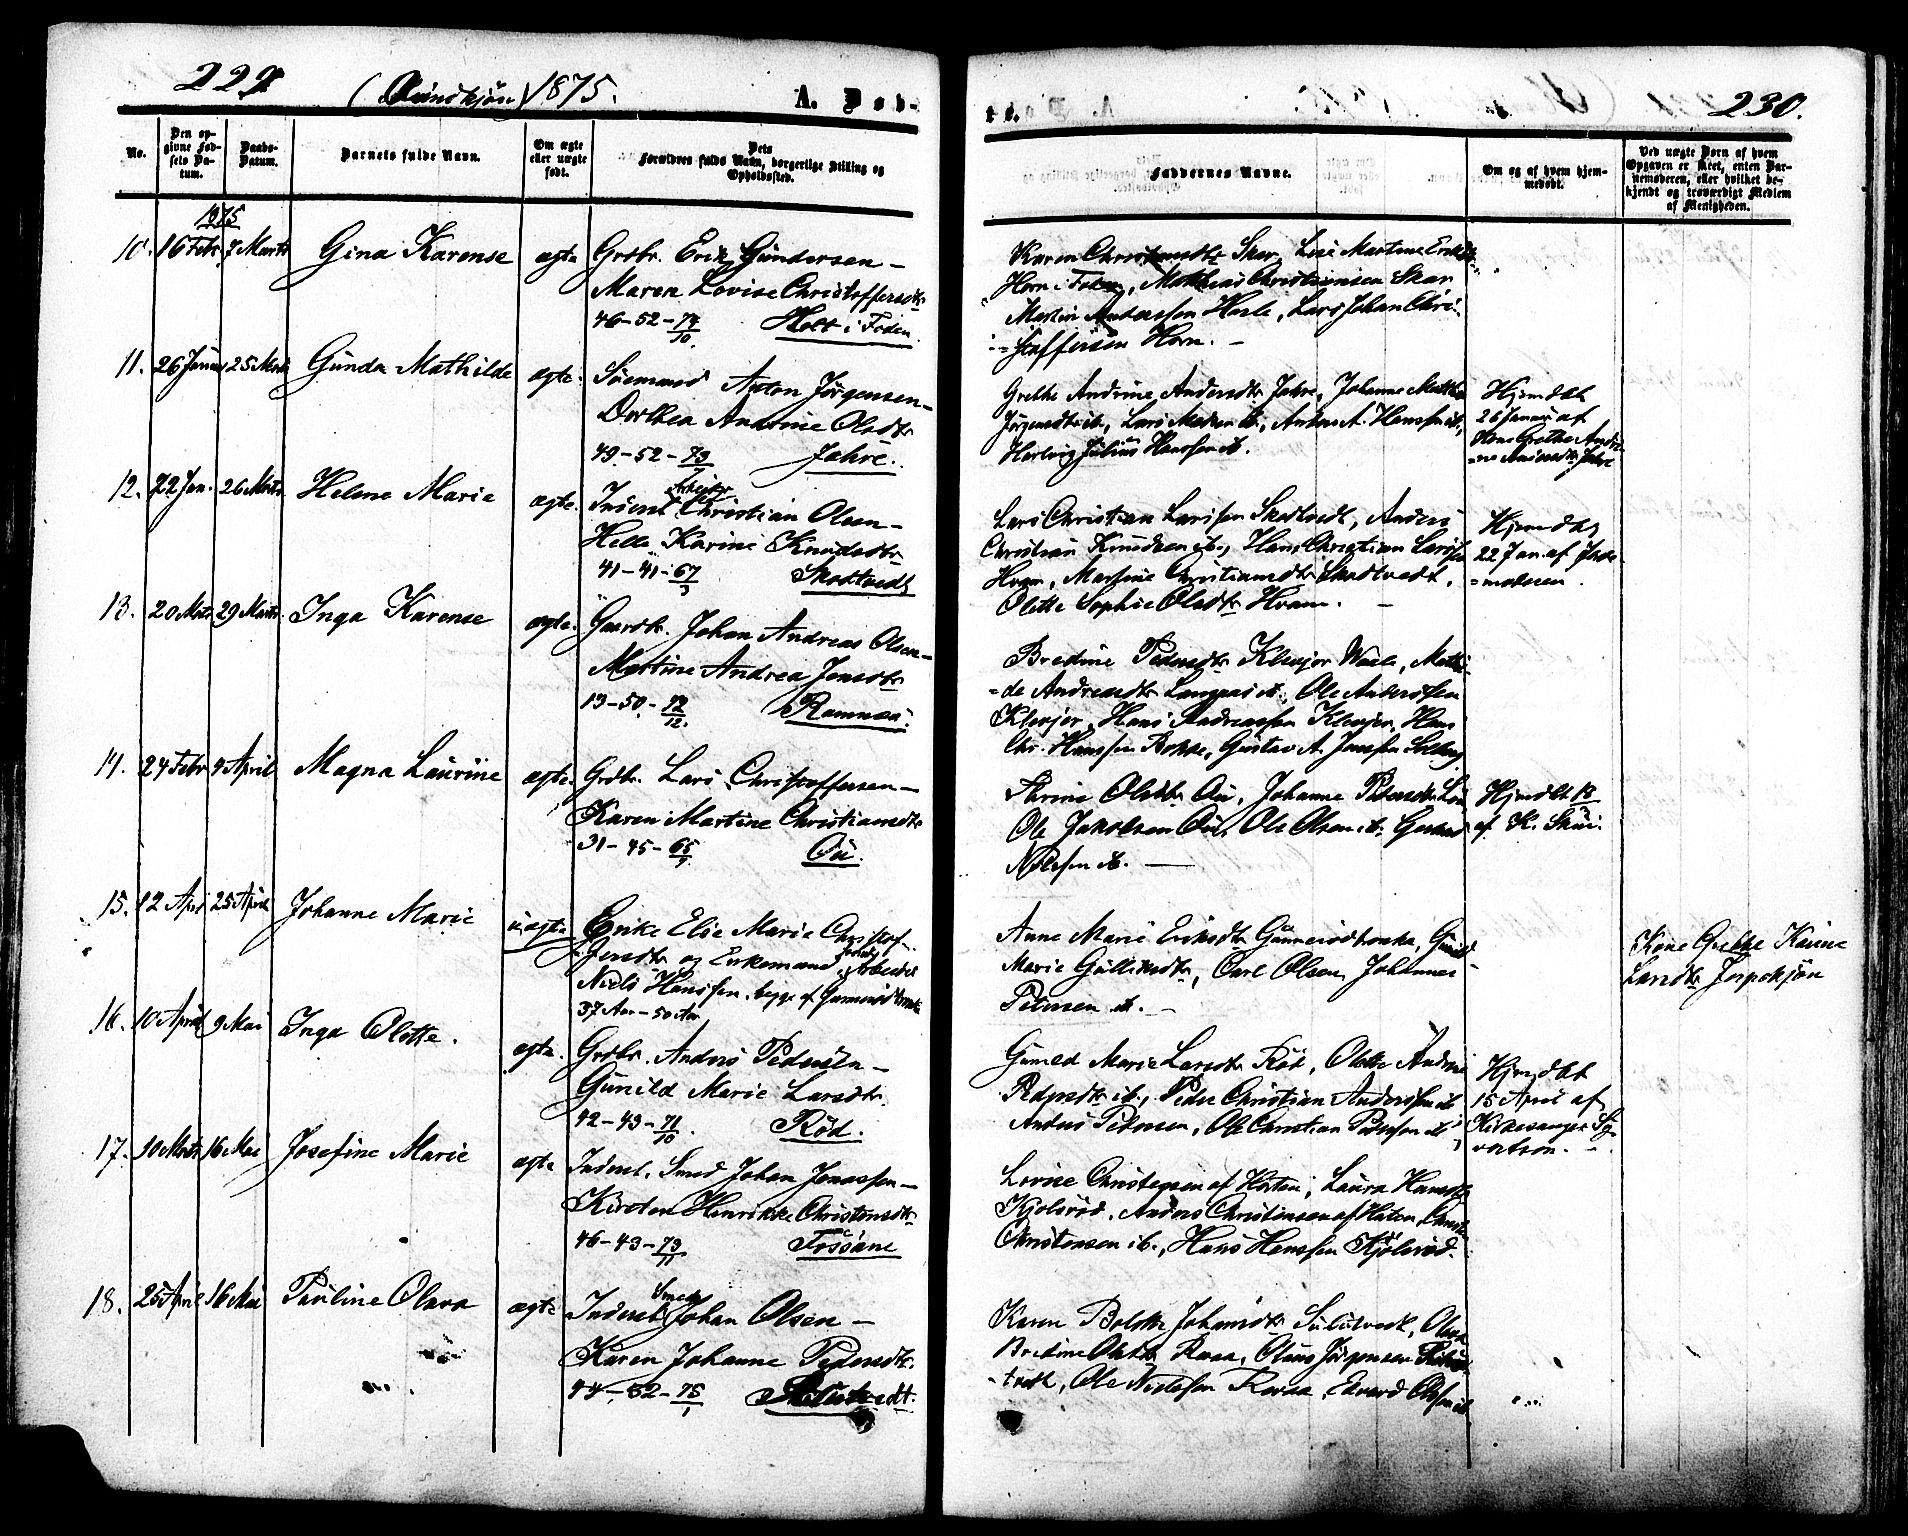 229
(Qvindkjøn) 1875.
A. Død-
No.
Den op-
givne Fød-
sels Da-
tum.
Daabs-
Datum.
Barnets fulde Navn.
Om ægte
eller uægte
født.
Dets
Forældres fulde Navn, borgerlige Stilling og
Opholdssted.
1875
10. 16 Febr 7 Marts Gina Karense ægte Grdbr. Erik Gundersen –
Maren Lovise Christoffersdtr
46–52–74/10 Holt i Foden
11. 26 Januar 25 Marts Gunda Mathilde ægte. Sømand Anton Jørgensen –
Dorthea Andrine Olsdtr
49–52–73 Jahre.
12. 22 Jan. 26 Marts Helene Marie ægte. Inderst Arbeider Christian Olsen –
Helle Karine Knudsdtr
41–41–67/3 Skottvedt
13. 20 Marts 29 Marts Inga Karense ægte. Gaardbr. Johan Andreas Olsen –
Martine Andrea Jensdtr
13–50–72/12. Ramnæs.
14. 24 Febr 4 April Magna Laurine ægte Grdbr. Lars Christoffersen –
Karen Martine Christiansdtr
31–45–65/9 Ou.
15. 12 April 25 April Johanne Marie uægte Enke Else Marie Christof-
Jensdtr og Enkemand Arbeider
Niels Hanssen, begge af
37 Aar – 50 Aar
16. 10 April 9 Mai Inga Olette. ægte. Grdbr. Anders Pedersen –
Gunild Marie Larsdtr.
42–43–71/10. Rød.
17. 10 Marts 16 Mai Josefine Marie ægte Inderst. Smed Johan Jonassen –
Kirsten Henrikke Christensdtr
46–43–73/11 Fossane
18. 25 April 16 Mai Pauline Olava ægte Inderst Smed Johan Olsen –
Karen Johanne Pedersdtr.
44–52–75/1
230.
te.
Faddernes Navne.
Om og af hvem hjem-
medøbt.
Ved uægte Børn af hvem
Opgaven er skeet, enten Bar-
nemoderen, eller hvilket be-
kjendt og troværdigt Medlem
af Menigheden.
Karen Christiansdtr Skar, Lise Martine Eriksdtr
Horn i Foden, Mathias Christiansen Skar
Martin Anderssen Hesle, Lars Johan Chri-
=stoffersen Horn. –
Grethe Andrine Andersdtr Jahre, Johanne Mathea
Jørgensdtr ib., Lars Madsen ib., Anton A. Hanssen ib,
Herlvig Julius Hanssen ib.
Hjemdøbt
26 Januar af
Kone Grethe Andri-
=ne Andersdtr Jahre
Lars Christian Larssen Skottvedt, Anders
Christian Knudsen ib., Hans Christian Larssen
Hvam, Martine Christiansdtr Skottvedt,
Olette Sophie Olsdtr Hvam. –
Hjemdøbt
22 Jan. af Jorde-
=moderen.
Bredine Pedersdtr Klevjer Wale, Mathil-
=de Andreasdtr Langnæs ib., Ole Anderssen
Klevjer, Hans Andreassen Klevjer, Hans
Chr. Hanssen Bakke, Gustav A. Jonssen Solberg
Olsdtr Ou, Johanne Petersdtr
Ole Jakobsen Ou, Ole Olsen ib.
Nilssen ib. –
Hjemdøbt
af K.
Anne Marie Eriksdtr Gunnerødbraaten, Gunild
Marie Gulliksdtr, Carl Olsen, Johannes
Petersen ib. –
Kone Grethe Karine
Larsdtr
Gunild Marie Larsdtr Rød, Olette Andrea
Pedersdtr ib., Peder Christian Anderssen ib
Anders Petersen, Ole Christian Pedersen ib
Hjemdøbt
15 April af
Kirkesanger Sy-
vertsen. –
Lovise Christensen af Horten, Laura Hansdtr
Kjølsrød, Anders Christensen af Horten,
Christensen ib., Hans Hanssen Kjølsrød.
Karen Bolette Johansdtr
Bredine Olsdtr Raaa, Olaus Jørgensen
-tvedt, Ole Nielssen Raaa, Edvard Olssen ib